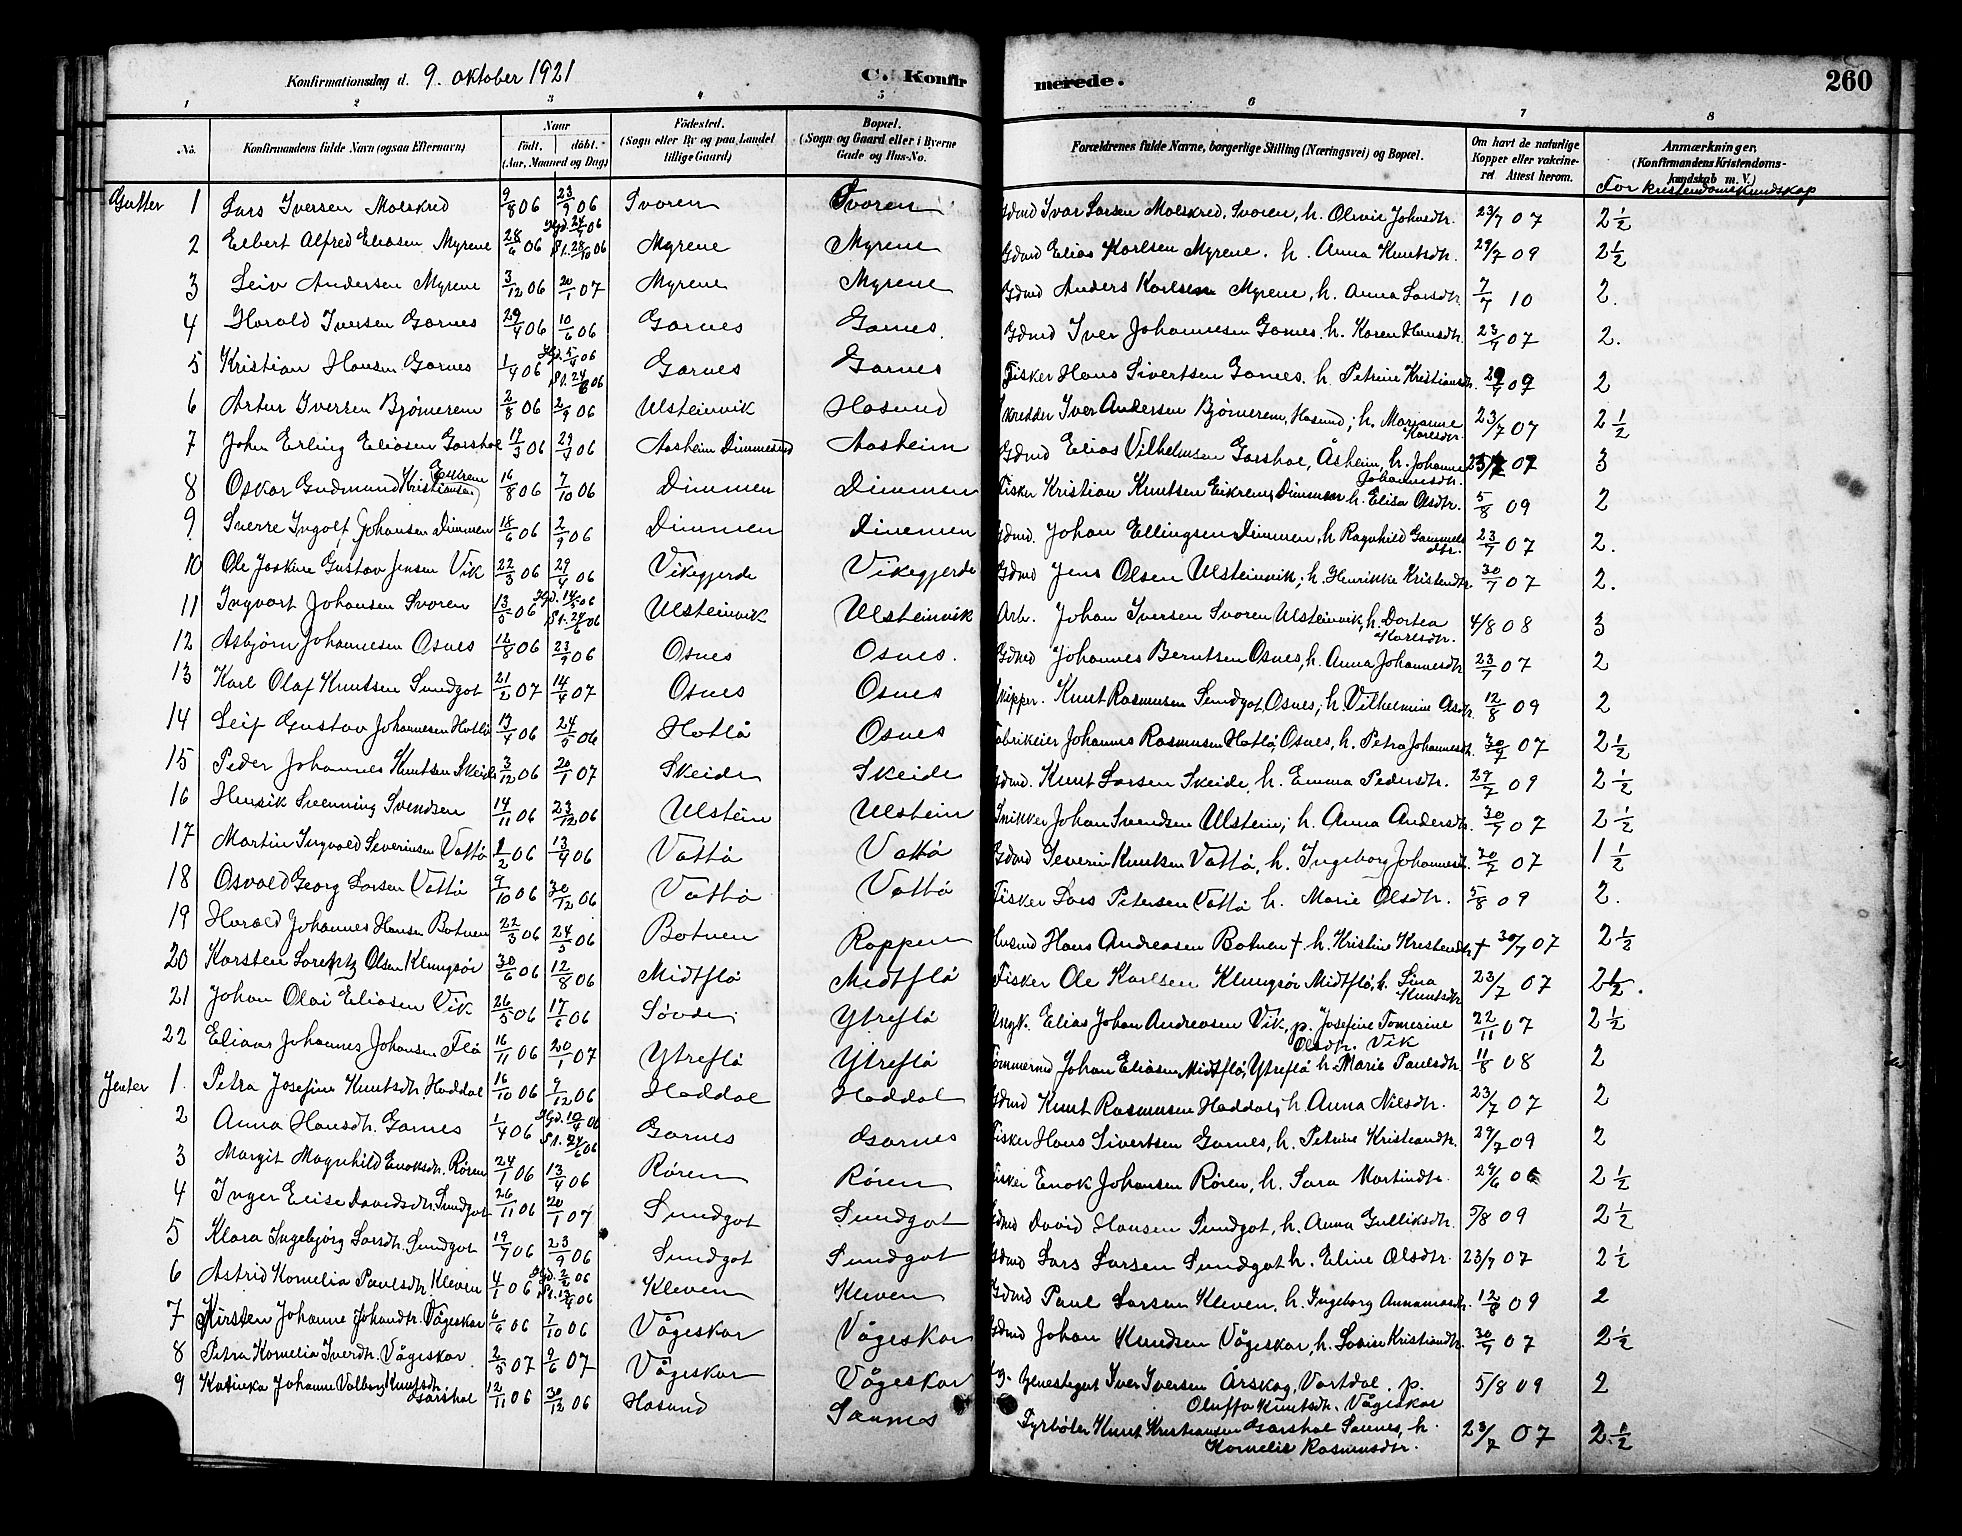 Konfirmationsdag d. 9. oktober 1921 C. Konfirmerede. 260
1 2 3 4 5 6 7 8
No. Konfirmandens fulde Navn (ogsaa Efternavn) Naar født. døbt. (Aar, Maaned og Dag) Fødested. (Sogn eller By og paa Landet tillige Gaard) Bopæl. (Sogn og Gaard eller i Byerne Gade og Hus-No. Forældrenes fulde Navne, borgerlige Stilling (Næringsvei) og Bopæl. Om havt de naturlige Kopper eller vakcineret Attest herom. Anmærkninger. (Konfirmandens Kristendomskundskab m. V.)
For kristendomskundskap
Gutter 1 Lars Iversen Molskred 9/8 06 23/9 06 Svoren Svoren Gdmd Ivar Larsen Molskred, Svoren, h. Olivie Johnsdtr. 23/7 07 2 1/2
2 Elbert Alfred Eliasen Myrene 28/6 06 Hjd. 24/7 06 St. 28/10 06 Myrene Myrene Gdmd Elias Karlsen Myrene. h. Anna Knutsdtr. 29/7 09 2 1/2
3 Leiv Andersen Myrene 3/12 06 20/1 07 Myrene Myrene Gdmd Anders Karlsen Myrene, h. Anna Larsdtr 7/7 10 2.
4 Harald Iversen Garnes 29/4 06 10/6 06 Garnes Garnes. Gdmd Iver Johannesen Garnes. h. Karen Hansdtr. 23/7 07 2.
5 Kristian Hansen Garnes 1/4 06 Hjd. 5/4 06 St. 24/6 06 Garnes Garnes Fisker Hans Sivertsen Garnes. h. Petrine Kristiansdtr. 29/7 09 2
6 Artur Iversen Bjørnerem 2/8 06 2/9 06 Ulsteinvik Hasund Skredder Iver Andersen Bjørnerem, Hasund; h. Marianne Karlsdtr. 23/7 07 2 1/2
7 John Erling Eliasen Garshol 19/3 06 29/4 06 Aasheim Dimmesund Aasheim Gdmd Elias Vilhelmsen Garshol, Åsheim, h. Johanne Johannesdtr. 23/7 07 3
8 Oskar Gudmund Kristiansen Eikrem 16/8 06 7/10 06 Dimmen Dimmen Fisker Kristian Knutsen Eikrem, Dimmen h. Elisa Olsdtr. 5/8 09 2
9 Sverre Ingolf Johansen Dimmen 18/6 06 2/9 06 Dimmen Dimmen Gdmd. Johan Ellingsen Dimmen, h Ragnhild Gammelsdtr. 23/7 07 2.
10 Ole Jaskine Gustav Jensen Vik 22/3 06 29/4 06 Vikegjerde Vikegjerde Gdmd Jens Olsen Ulsteinvik; h. Henrikke Kristendtr. 30/7 07 2.
11 Ingvart Johansen Svoren 13/5 06 Hjd. 14/5 06 St. 24/6 06 Ulsteinvik Ulsteinvik Arb. Johan Iversen Svoren Ulsteinvik, h. Dortea Karlsdtr. 4/8 08 3
12 Asbjørn Johannesen Osnes 12/8 06 23/9 06 Osnes Osnes. Gdmd Johannes Berntsen Osnes, h. Anna Johannesdtr 23/7 07 2
13 Karl Olaf Knutsen Sundgot 21/2 07 14/4 07 Osnes Osnes Skipper. Knut Rasmussen Sundgot, Osnes; h. Vilhelmine Olsdtr. 12/8 09 2
14 Leif Gustav Johannesen Hatlø 13/4 06 24/5 06 Hatlø Osnes Fabrikeier Johannes Rasmusen Hatlø, Osnes, h. Petra Johannesdtr. 30/7 07 2 1/2
15 Peder Johannes Knutsen Skeide 3/12 06 20/1 07 Skeide Skeide Gdmd. Knut Larsen Skeide, h. Emma Pedersdtr. 29/7 09 2 1/2
16 Henrik Svenning Svendsen 14/11 06 23/12 06 Ulstein Ulstein Snikker Johan Svendsen Ulstein; h. Anna Andersdtr. 30/7 07 2 1/2
17 Martin Ingvald Severinsen Vattø 2/2 06 13/4 06 Vattø Vattø Gdmd Severin Knutsen Vattø, h. Ingeborg Johannesdtr. 30/7 07 1 1/2
18 Osvald Georg Larsen Vattø 9/10 06 30/12 06 Vattø Vattø Fisker Lars Petersen Vattø h. Marie Olsdtr. 5/8 09 2.
19 Harald Johannes Hansen Botnen 22/3 06 24/5 06 Botnen Roppen Husmd Hans Andreasen Botnen † h. Kristine Kristendtr † 30/7 07 2 1/2
20 Karsten Lorentz Olsen Klungsør 30/6 06 12/8 06 Midtflø Midtflø Fisker Ole Karlsen Klungsør Midtflø, h. Lina Knutsdtr 23/7 07 2 1/2.
21 Johan Olai Eliasen Vik 26/5 06 17/6 06 Søvde Ytreflø Ungk. Elias Johan Andreasen Vik, p. Josefine Tomesine Olsdtr. Vik 22/11 07 2 1/2
22 Elias Johannes Johansen Flø 16/11 06 20/1 07 Ytreflø Ytreflø Tømmermd Johan Eliasen Midtflø, Ytreflø h. Marie Paulsdtr. 11/8 08 2
Jenter 1. Petra Josefine Knutsdtr. Haddal 16/10 06 9/12 06 Haddal Haddal Gdmd Knut Rasmusen Haddal; h. Anna Nilsdtr. 23/7 07 2
2 Anna Hansdtr. Garnes 1/4 06 Hjd. 10/4 06 St. 24/6 06 Garnes Garnes Fisker Hans Sivertsen Garnes, h. Petrine Kristiandtr. 29/7 09 2
3 Margit Magnhild Enoksdtr. Røren 24/1 06 13/4 06 Røren Røren Fisker Enok Johansen Røren, h. Sara Martindtr. 29/6 06 2 1/2
4 Inger Elise Davidsdtr. Sundgot 26/11 06 20/1 07 Sundgot Sundgot Gdmd David Hansen Sundgot, h. Anna Gulliksdtr. 5/8 09 2 1/2
5 Klara Ingebjørg Larsdtr. Sundgot 19/7 06 23/9 06 Sundgot Sundgot Gdmd Lars Larsen Sundgot h. Eline Olsdtr. 23/7 07 2 1/2
6 Astrid Kornelia Paulsdtr. Kleven 4/1 06 Hjd. 2/2 06 St. 13/4 06 Kleven Kleven Gdmd Paul Larsen Kleven, h. Ingeborg Annamasdtr. 12/8 09 2
7 Kirsten Johanne Johandtr. Vågeskar 6/6 06 7/10 06 Vågeskar Vågeskar Gdmd Johan Knudsen Vågeskar, h. Lovise Kristiandtr. 30/7 07 2 1/2
8 Petra Kornelia Iverdtr. Vågeskar 2/5 07 9/6 07 Vågeskar Vågeskar Ug. Iver Iversen Årskog, Vartdal. p. Oluffa Knutsdtr. Vågeskar 5/8 09 2
9 Katinka Johanne Valborg Knutsdtr. Garshol 12/11 06 30/12 06 Hasund Saunes Fyrbøter Knut Kristiansen Garshol Saunes, h. Kornelie Rasmusdtr. 23/7 07 2 1/2